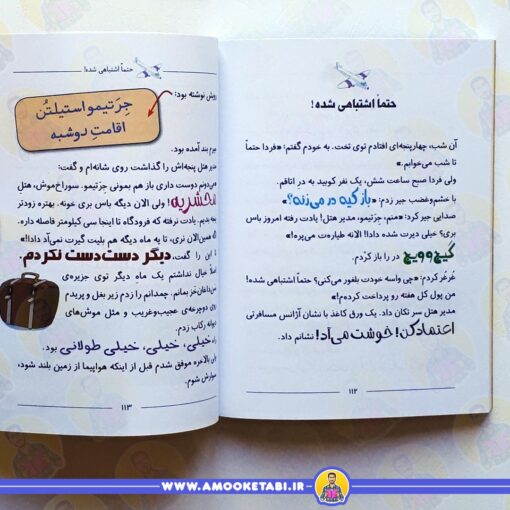 حتماً اشتباهی شده!
آن شب، چهارپنجه‌ای افتادم توی تخت. به خودم گفتم: «فردا حتماً
تا شب می‌خوابم.»
ولی فردا صبح ساعت شش، یک نفر کوبید به در اتاقم.
با خشم‌وغضب جیر زدم: «باز کیه در می‌زنه؟»
صدایی جیر کرد: «منم، جِرَتیمو، مدیر هتل! یادت رفته امروز باس
بری؟ خیلی دیرت شده دادا! الانه طیاره‌ت می‌پره!»
گیج‌وویج در را باز کردم.
غُرغُر کردم: «چی واسه خودت بلغور می‌کنی؟ حتماً اشتباهی شده!
من پول کل هفته رو پرداخت کرده‌م!»
مدیر هتل سر تکان داد. یک ورق کاغذ با نشان آژانس مسافرتی
اعتماد کن! خوشت می‌آد! نشانم داد.
۱۱۲
حتماً اشتباهی شده!
رویش نوشته بود:
جِرَتیمو استیلتُن
اقامتِ دوشبه
بند آمده بود.
مدیر هتل پنجه‌اش را گذاشت روی شانه‌ام و گفت:
دوست داری باز هم بمونی جِرَتیمو. سوراخ‌موش، هتل
محشریه! ولی الان دیگه باس بری خونه. بهتره زودتر
بجنبیم. یادت نرفته که فرودگاه تا اینجا سی کیلومتر فاصله داره.
همین‌الان نری، تا یه ماه دیگه هم بلیت گیرت نمی‌آد دادا!»
تا این را گفت، دیگر دست‌دست نکردم.
اصلاً خیال نداشتم یک ماهِ دیگر توی جزیره‌ی
بمانم. چمدانم را زدم زیر بغل و پریدم
روی دوچرخه‌ی عجیب‌وغریب و مثل موش‌های
رکاب زدم.
راه خیلی، خیلی، خیلی طولانی بود.
بالاخره موفق شدم قبل از اینکه هواپیما از زمین بلند شود،
سوارش شوم.
۱۱۳
WWW.AMOOKETABI.IR